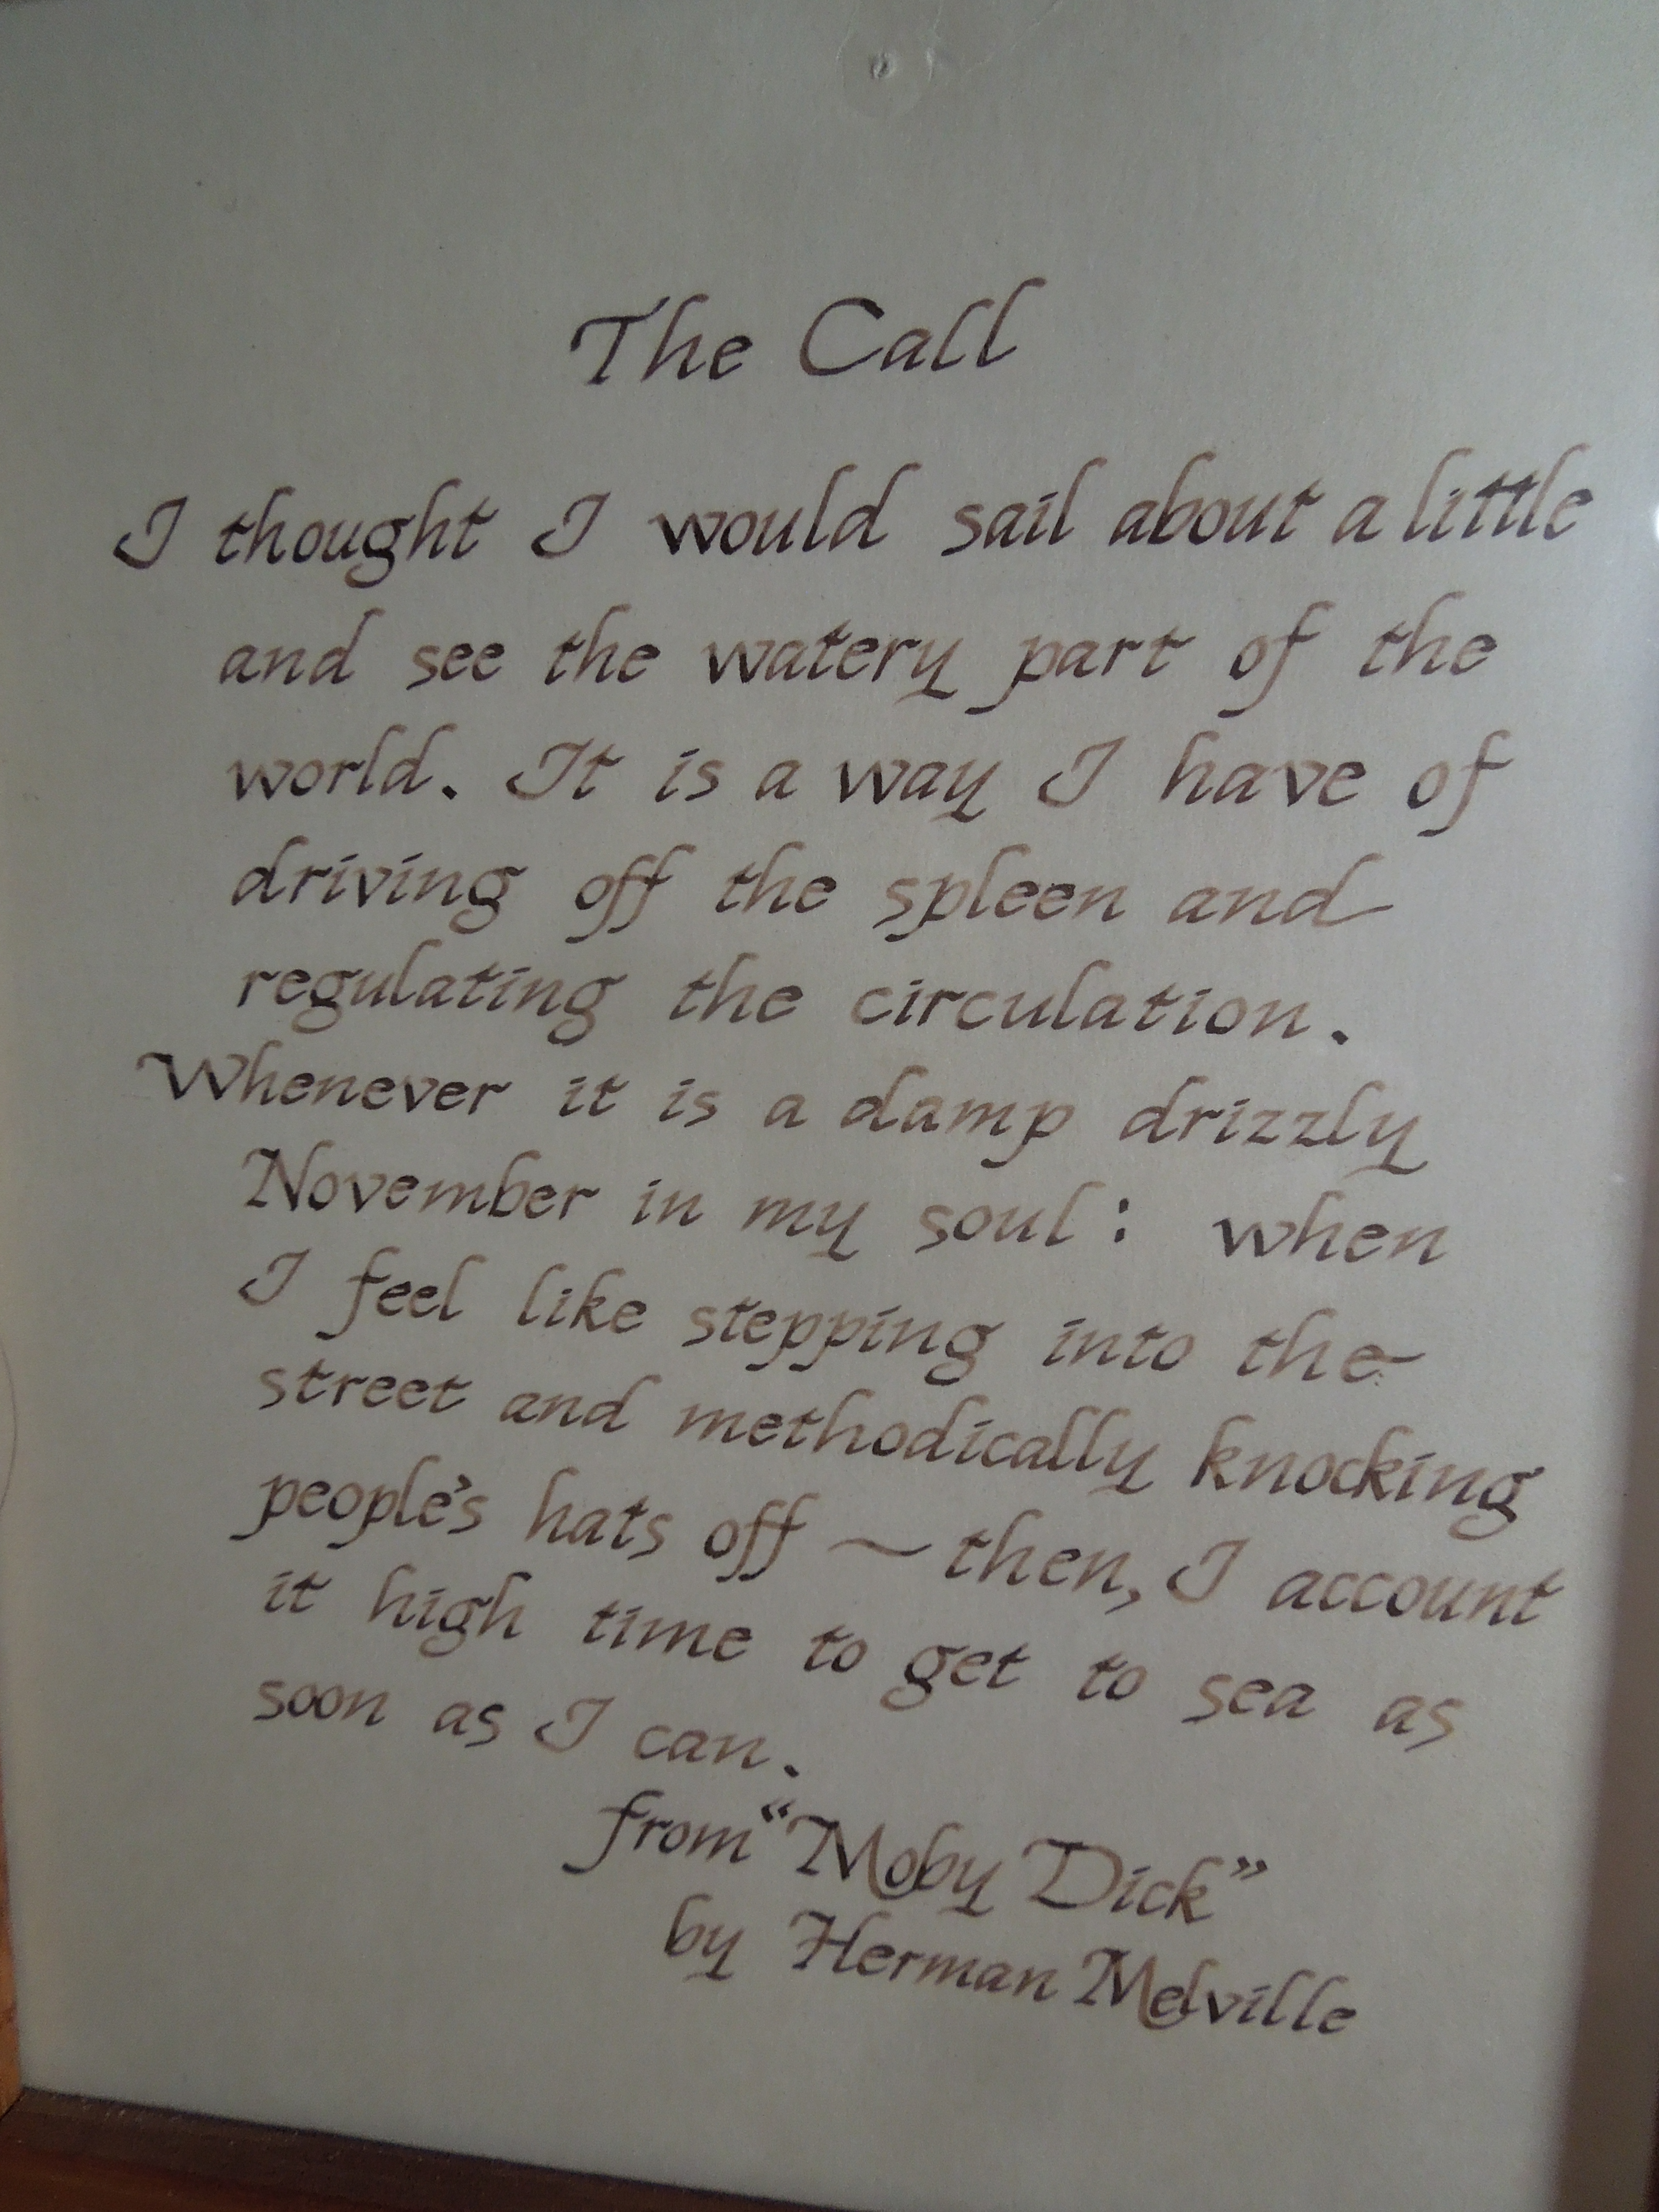 The Call
I thought I would sail about a little
and see the watery part of the
world. It is a way I have of
driving off the spleen and
regulating the circulation.
Whenever it is a damp drizzly
November in my soul: when
I feel like stepping into the
street and methodically knocking
people's hats off ~ then, I account
it high time to get to sea as
soon as I can.
from "Moby Dick"
by Herman Melville